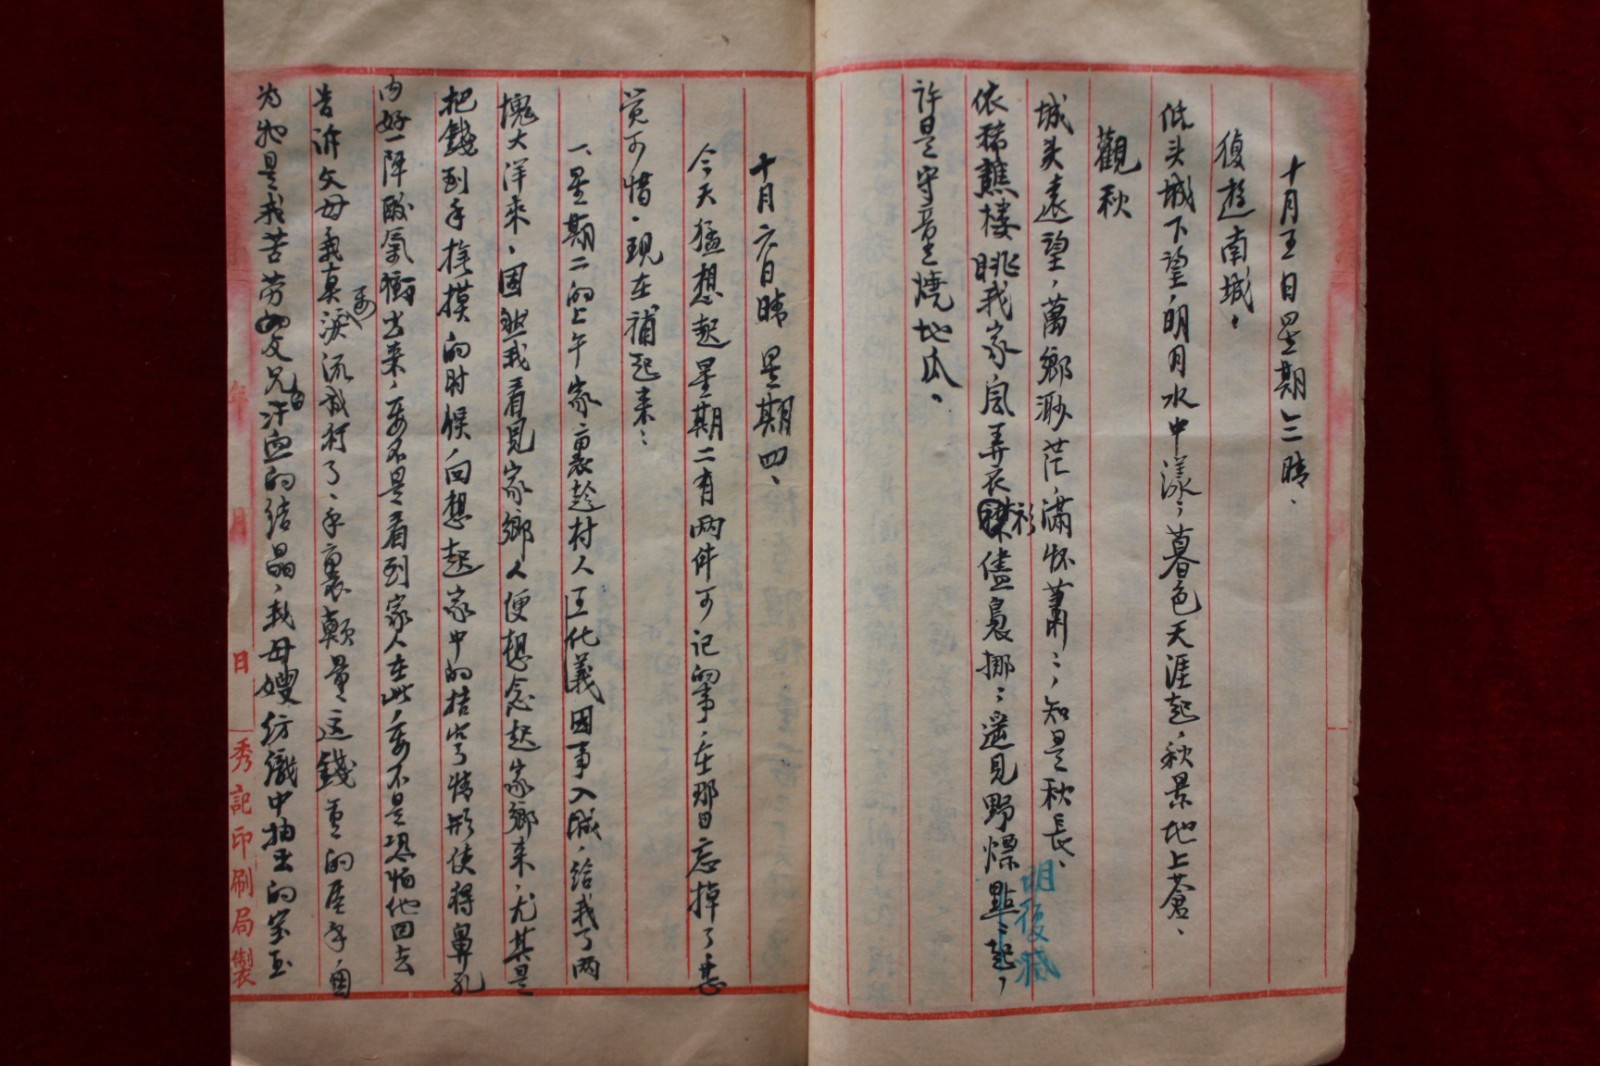 十月五日星期三晴、
復遊南城，
低头城下望，明月水中漾，暮色天涯起，秋景地上蒼、
觀秋
城头遠望，萬鄉渺茫，满怀蕭ミ，知是秋長、
依稀譙楼眺我家風弄衣衫儘裊挪ミ遥見野煙點ミ起，
許是守童燒地瓜。
十月六日晴 星期四、
今天猛想起星期二有两件可记的事，在那日忘掉了
覚可惜，現在補起来：
一、星期二的上午家裏趁村人因事入城，给我了两
塊大洋来，固然我看見家鄉人便想念起家鄉来，尤其是
把錢到手摸的时候，回想起家中的拮情形使得鼻孔
内好一陣酸氣衝出来，要不是看到家人在此，要不是恐怕他回去
告诉父母我真要淚流我打了，手裏顛量这錢的
为牠是我苦劳的父兄的汗血的结晶，我母嫂纺織中抽出的
明復
年 月 日 秀記印刷局製